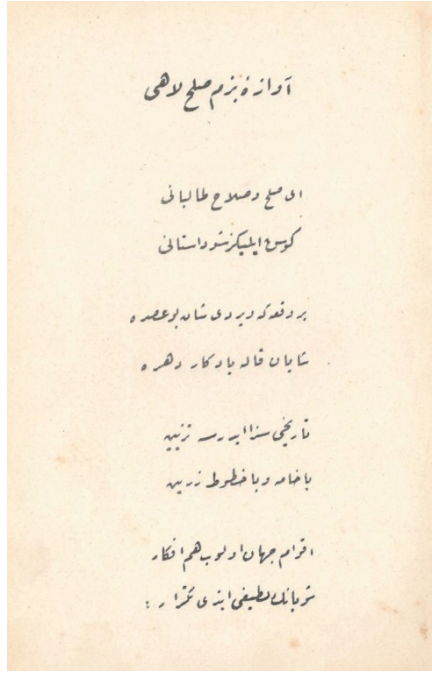 آوازهٔ بزم صلح لاهی
ای صلح و صلاح طالبانی
كوش ایلیكز شو داستانی
بر وقعه كه ویردی شان بو عصره
شایان قاله یادكار دهره
تاریخی سزا ایدرسه تزیین
باخامه و باخطوط زرین
اقوام جهان اولوب هم افكار
شو بانك لطیفی ایتدی تكرار :